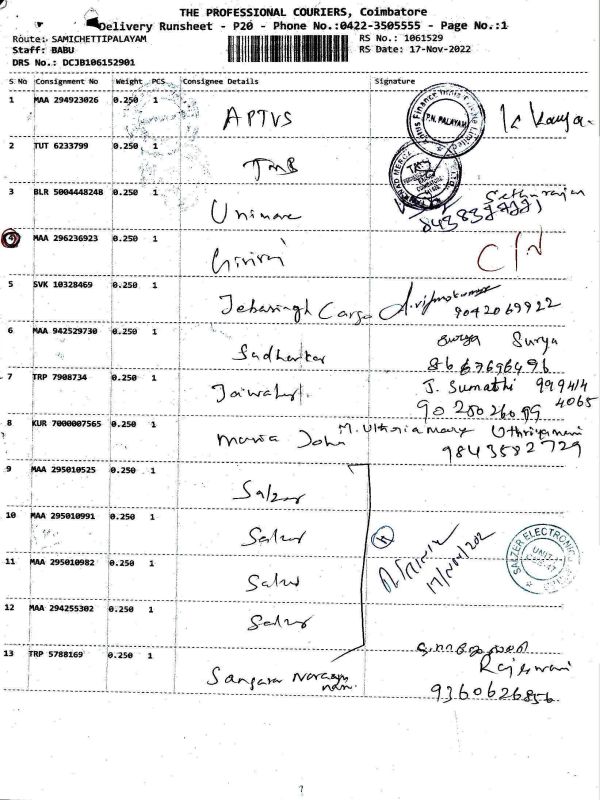 THE PROFESSIONAL COURIERS, Coimbatore
Delivery Runsheet - P20 - Phone No.:0422-3505555 - Page No.:1
Route: SAMICHETTIPALAYAM RS No.: 1061529
Staff: BABU RS Date: 17-Nov-2022
DRS No.: DCJB106152901
S No Consignment No Weight PCS Consignee Details Signature
1 MAA 294923026 0.250 1 APTVS P.N. PALAYAM K Kavya
2 TUT 6233799 0.250 1 TMB
3 BLR 5004448248 0.250 1 Unimove Sethurajan
4 MAA 296236923 0.250 1 Giriraj C/N
5 SVK 10328469 0.250 1 Jebasingh Cargo 9042069922
6 MAA 942529730 0.250 1 Sudhakar Surya
8667696496
7 TRP 7908734 0.250 1 J. Sumathi 999414
9028026099 4065
8 KUR 7000007565 0.250 1 Maria John
9843582729
9 MAA 295010525 0.250 1 Salzer
10 MAA 295010991 0.250 1 Salzer 4 SALZER ELECTRONICS
11 MAA 295010982 0.250 1 Salzer
12 MAA 294255302 0.250 1 Salzer
13 TRP 5788169 0.250 1 Sangara Narayanan Rajeswari
9360626856